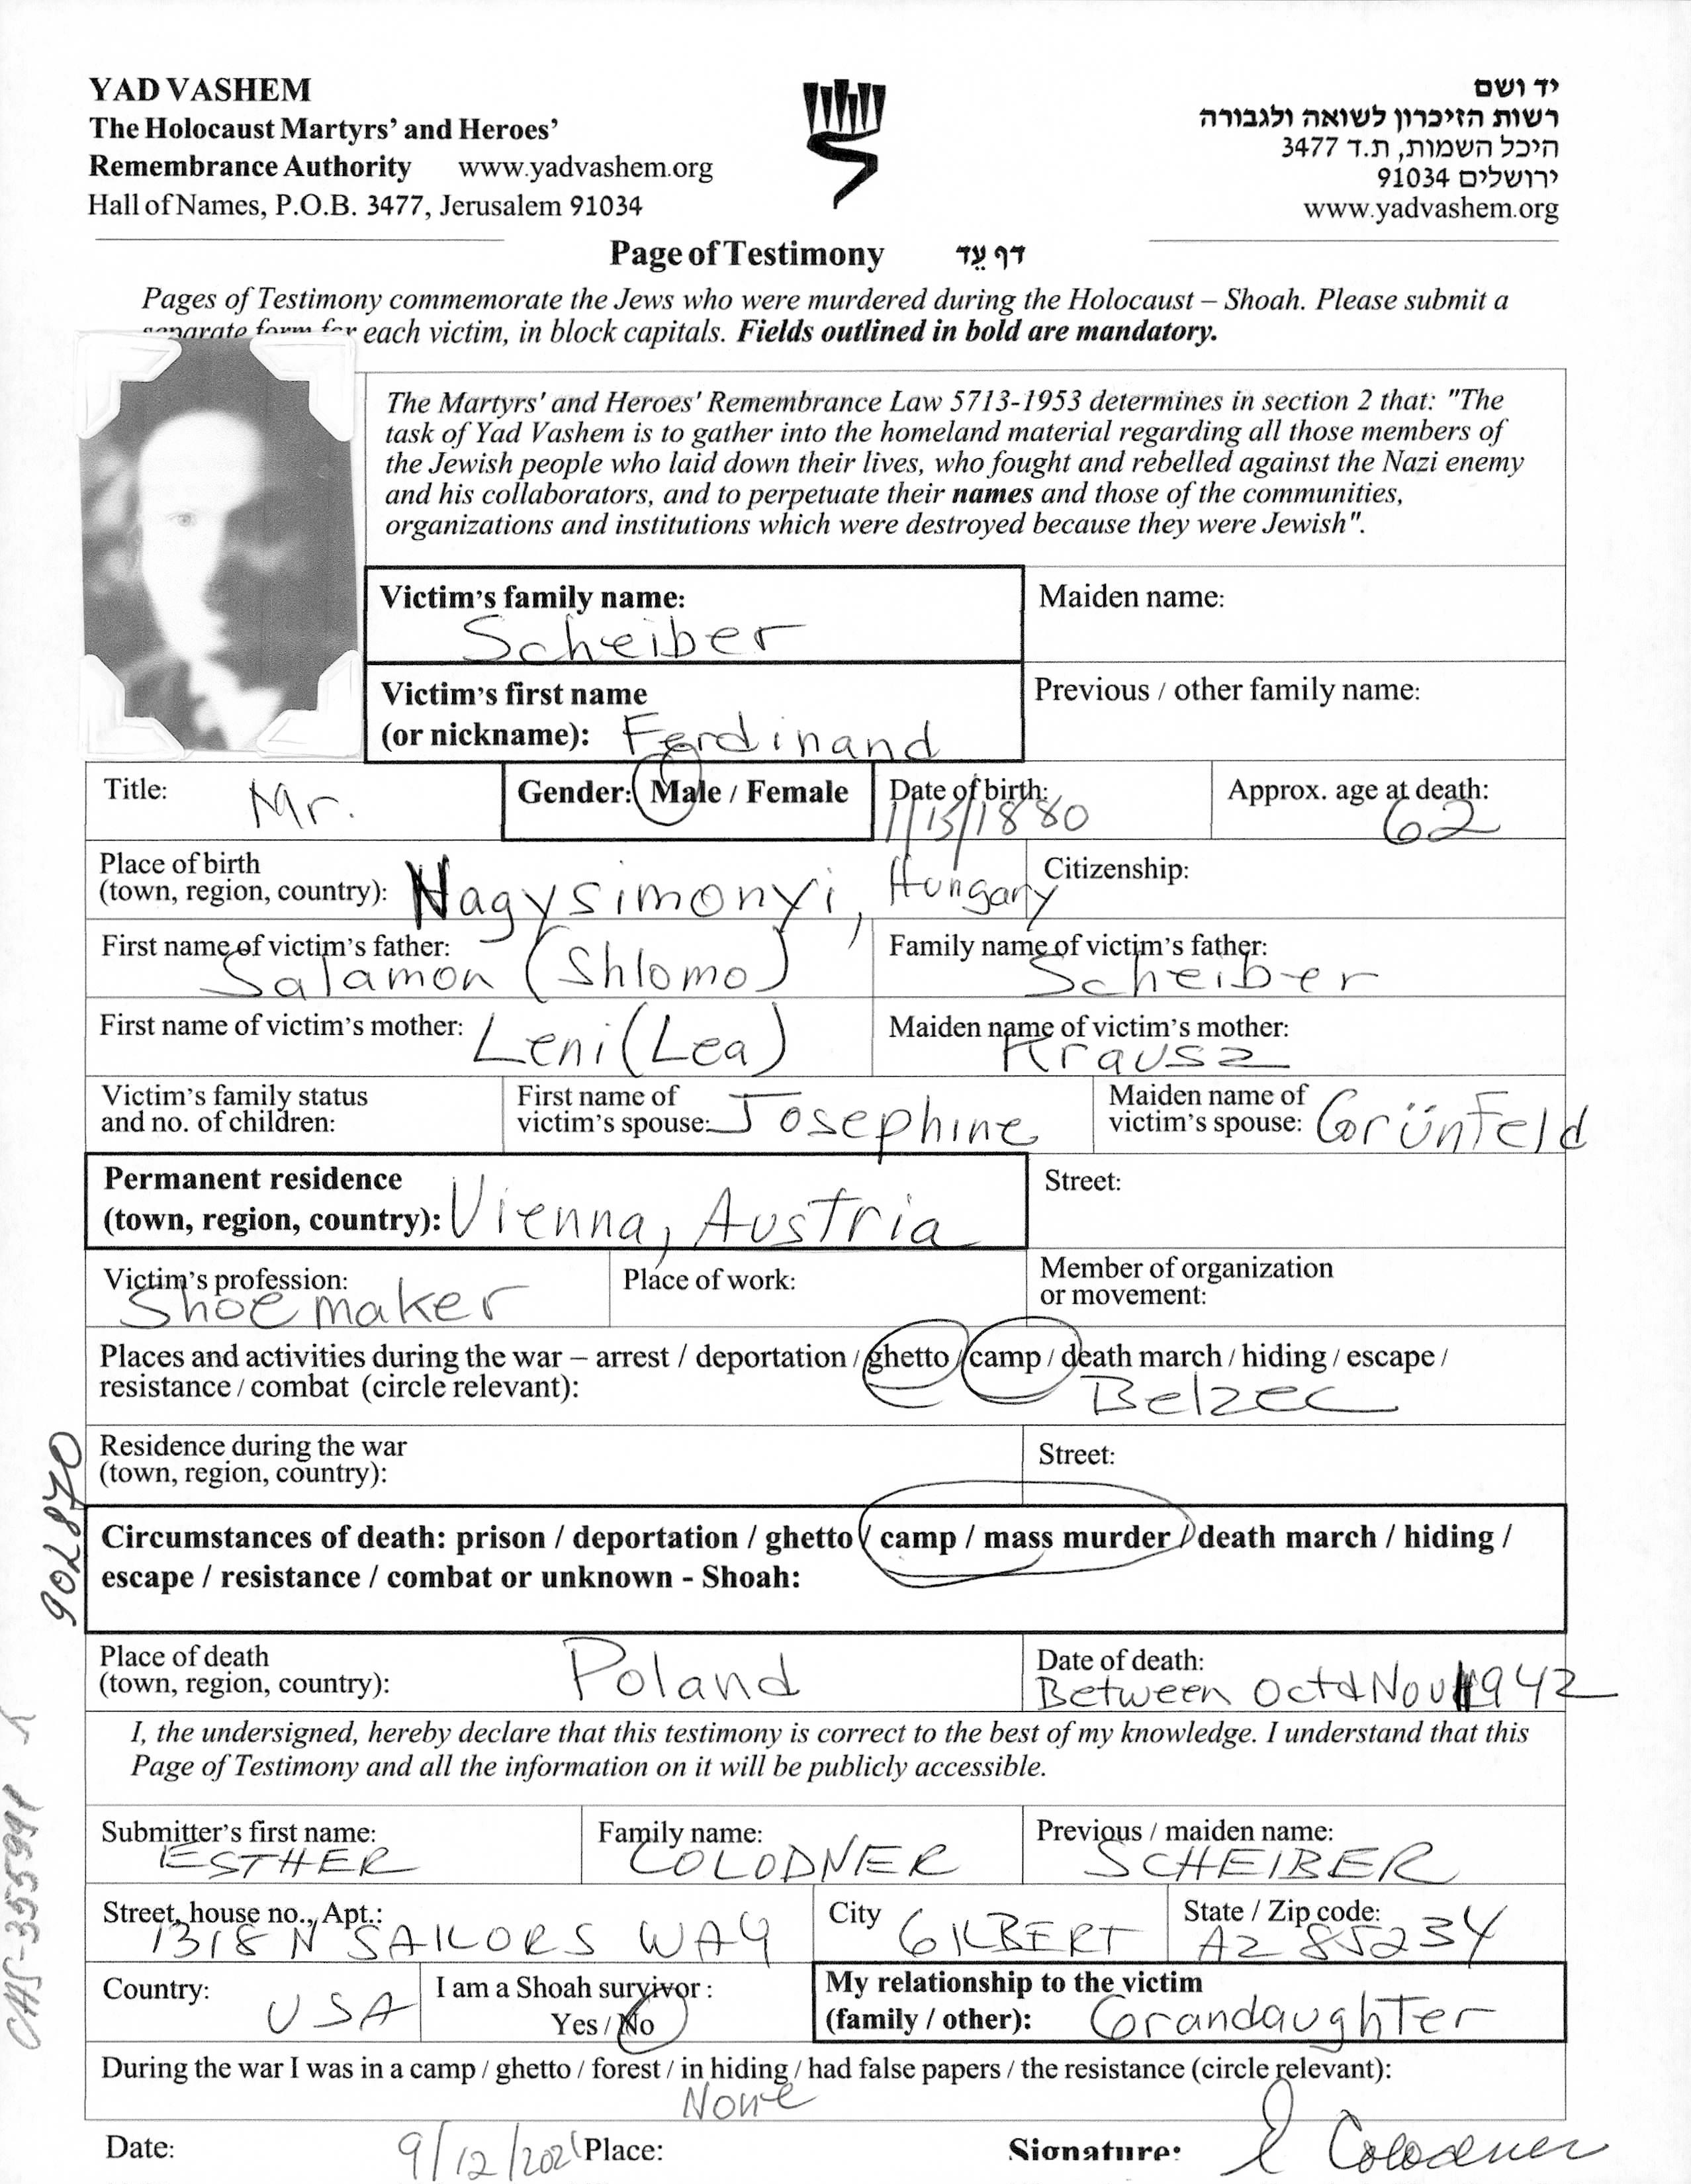 YAD VASHEM
The Holocaust Martyrs' and Heroes'
Remembrance Authority www.yadvashem.org
Hall of Names, P.O.B. 3477, Jerusalem 91034
יד ושם
רשות הזיכרון לשואה ולגבורה
היכל השמות, ת.ד 3477
ירושלים 91034
www.yadvashem.org
Page of Testimony דף עֵד
Pages of Testimony commemorate the Jews who were murdered during the Holocaust – Shoah. Please submit a
separate form for each victim, in block capitals. Fields outlined in bold are mandatory.
The Martyrs' and Heroes' Remembrance Law 5713-1953 determines in section 2 that: "The
task of Yad Vashem is to gather into the homeland material regarding all those members of
the Jewish people who laid down their lives, who fought and rebelled against the Nazi enemy
and his collaborators, and to perpetuate their names and those of the communities,
organizations and institutions which were destroyed because they were Jewish".
Victim's family name: Maiden name:
Scheiber
Victim's first name Previous / other family name:
(or nickname): Ferdinand
Title: Mr. Gender: Male / Female Date of birth: 1/13/1880 Approx. age at death: 62
Place of birth Citizenship:
(town, region, country): Nagysimonyi, Hungary
First name of victim's father: Family name of victim's father:
Salamon (Shlomo) Scheiber
First name of victim's mother: Leni (Lea) Maiden name of victim's mother: Krausz
Victim's family status First name of Maiden name of
and no. of children: victim's spouse: Josephine victim's spouse: Grünfeld
Permanent residence Street:
(town, region, country): Vienna, Austria
Victim's profession: Place of work: Member of organization
Shoemaker or movement:
Places and activities during the war – arrest / deportation / ghetto / camp / death march / hiding / escape /
resistance / combat (circle relevant): Belzec
Residence during the war Street:
(town, region, country):
Circumstances of death: prison / deportation / ghetto / camp / mass murder / death march / hiding /
escape / resistance / combat or unknown - Shoah:
Place of death Date of death:
(town, region, country): Poland Between Oct & Nov 1942
I, the undersigned, hereby declare that this testimony is correct to the best of my knowledge. I understand that this
Page of Testimony and all the information on it will be publicly accessible.
Submitter's first name: Family name: Previous / maiden name:
ESTHER COLODNER SCHEIBER
Street, house no., Apt.: City State / Zip code:
1318 N SAILORS WAY GILBERT AZ 85234
Country: USA I am a Shoah survivor: My relationship to the victim
Yes / No (family / other): Grandaughter
During the war I was in a camp / ghetto / forest / in hiding / had false papers / the resistance (circle relevant):
None
Date: 9/12/2021 Place: Signature: E Colodner
902870